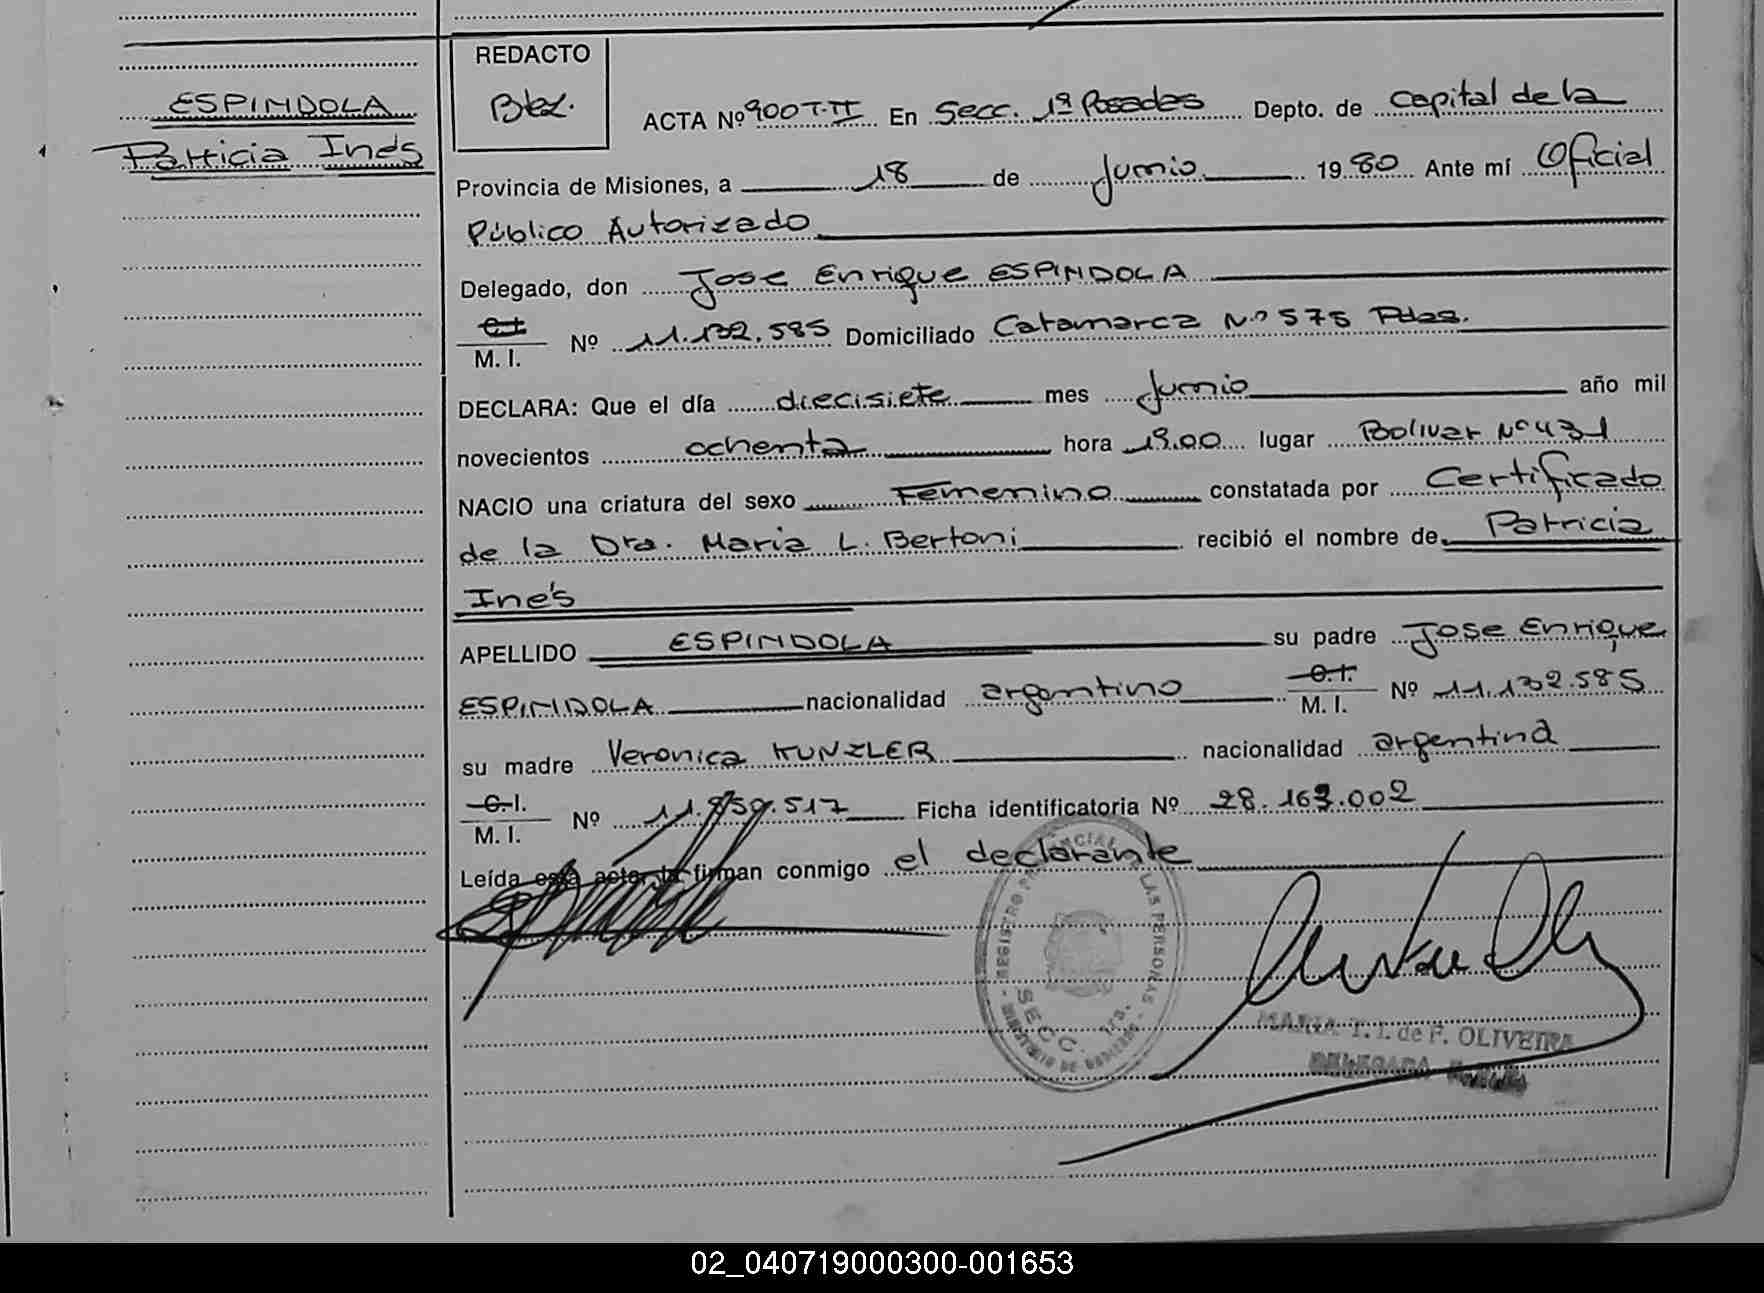 REDACTO
ESPINDOLA
Patricia Inés
ACTA Nº 900 T-II En Secc. 1ª Posadas Depto. de Capital de la
Provincia de Misiones, a 18 de Junio 1980 Ante mí Oficial
Público Autorizado
Delegado, don Jose Enrique ESPINDOLA
C.I. M. I. Nº 11.132.585 Domiciliado Catamarca Nº 575 Pdas.
DECLARA: Que el día diecisiete mes Junio año mil
novecientos ochenta hora 19.00 lugar Bolivar Nº 431
NACIO una criatura del sexo Femenino constatada por Certificado
de la Dra. Maria L. Bertoni recibió el nombre de Patricia
Inés
APELLIDO ESPINDOLA su padre Jose Enrique
ESPINDOLA nacionalidad argentino C.I. M. I. Nº 11.132.585
su madre Veronica KUNZLER nacionalidad argentina
C.I. M. I. Nº 11.859.517 Ficha identificatoria Nº 28.163.002
Leída esta acta, la firman conmigo el declarante
REGISTRO PROVINCIAL LAS PERSONAS
SECC. 1ra.
MARIA T. I. de F. OLIVEIRA
DELEGADA
02_040719000300-001653